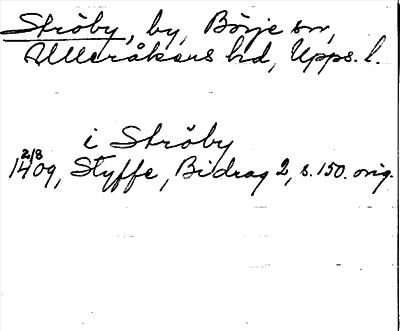 Ströby, by, Börje sn,
Ulleråkers hd, Upps. l.
i Ströby
2/8
1409, Styffe, Bidrag 2, s. 150. orig.